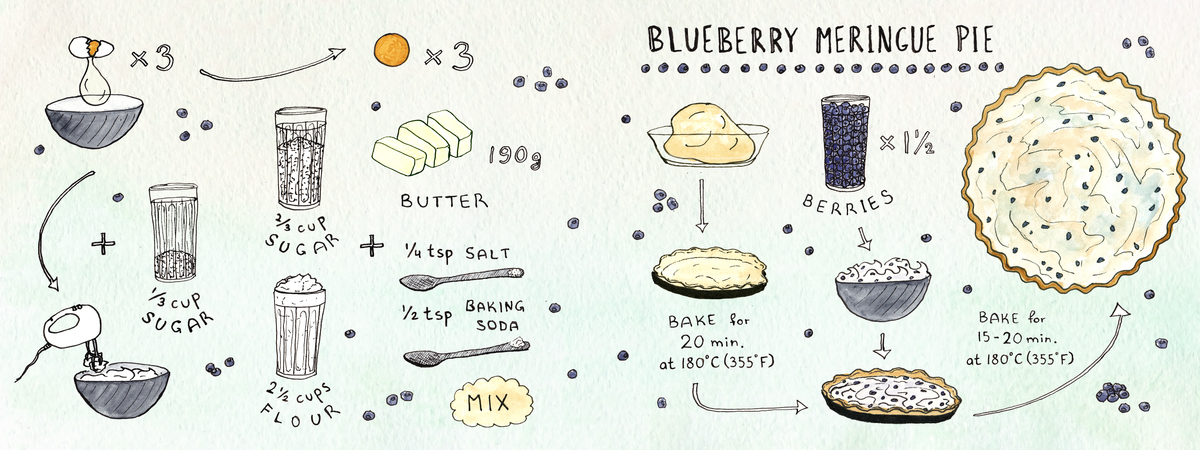 ×3
×3
190g
BUTTER
2/3 CUP
SUGAR
+
1/3 CUP
SUGAR
+
1/4 tsp SALT
1/2 tsp BAKING
SODA
2 1/2 CUPS
FLOUR
MIX
BLUEBERRY MERINGUE PIE
×1 1/2
BERRIES
BAKE for
20 min.
at 180°C (355°F)
BAKE for
15-20 min.
at 180°C (355°F)